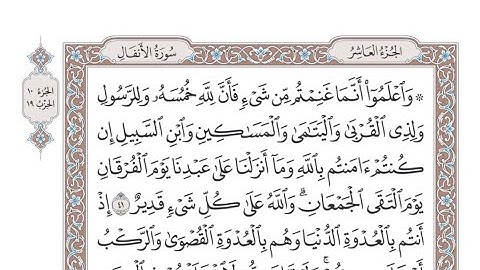 الجُزْءُ العَاشِرُ
سُورَةُ الأَنفَالِ
الجُزءُ ١٠
الحِزْبُ ١٩
۞ وَٱعْلَمُوٓا۟ أَنَّمَا غَنِمْتُم مِّن شَىْءٍ فَأَنَّ لِلَّهِ خُمُسَهُۥ وَلِلرَّسُولِ
وَلِذِى ٱلْقُرْبَىٰ وَٱلْيَتَٰمَىٰ وَٱلْمَسَٰكِينِ وَٱبْنِ ٱلسَّبِيلِ إِن
كُنتُمْ ءَامَنتُم بِٱللَّهِ وَمَآ أَنزَلْنَا عَلَىٰ عَبْدِنَا يَوْمَ ٱلْفُرْقَانِ
يَوْمَ ٱلْتَقَى ٱلْجَمْعَانِ ۗ وَٱللَّهُ عَلَىٰ كُلِّ شَىْءٍ قَدِيرٌ ٤١ إِذْ
أَنتُم بِٱلْعُدْوَةِ ٱلدُّنْيَا وَهُم بِٱلْعُدْوَةِ ٱلْقُصْوَىٰ وَٱلرَّكْبُ